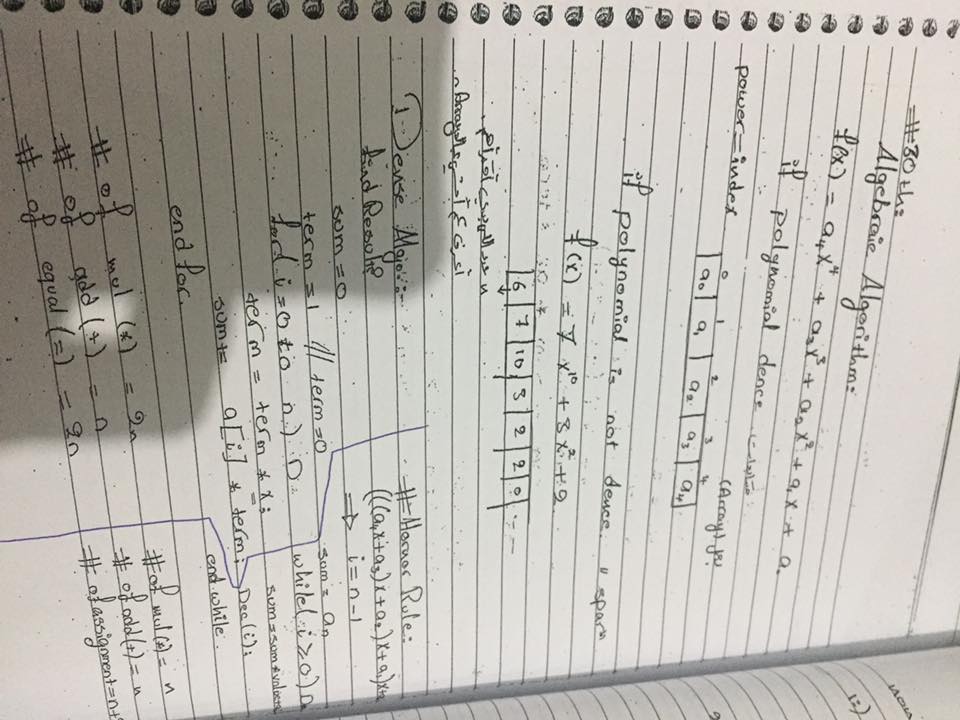 #30th:
Algebraic Algorithm:
f(x) = a₄x⁴ + a₃x³ + a₂x² + a₁x + a.
if polynomial dence
(Array)
power=index
0 1 2 3 4
a₀ a₁ a₂ a₃ a₄
if polynomial is not dence. "spar"
f(x) = 7 x¹⁰ + 3 x² + 2
6 7 10 3 2 2 0 ---
Array
Dense Algo:-
find Result?
sum=0
term=1 // term=0
for( i=0 to n:) D
term = term * x;
sum+= a[i] * term;
end for.
# of mul (*) = 2n
# of add (+) = n
# of equal (=) = 2n
#Hornor Rule:
(((a₄x+a₃)x+a₂)x+a₁)x+
⇒ i=n-1
sum= an
while( i≥0) D
sum=sum*
Dec(i);
end while.
# of mul(*)= n
# of add(+)= n
# of assignment=n+